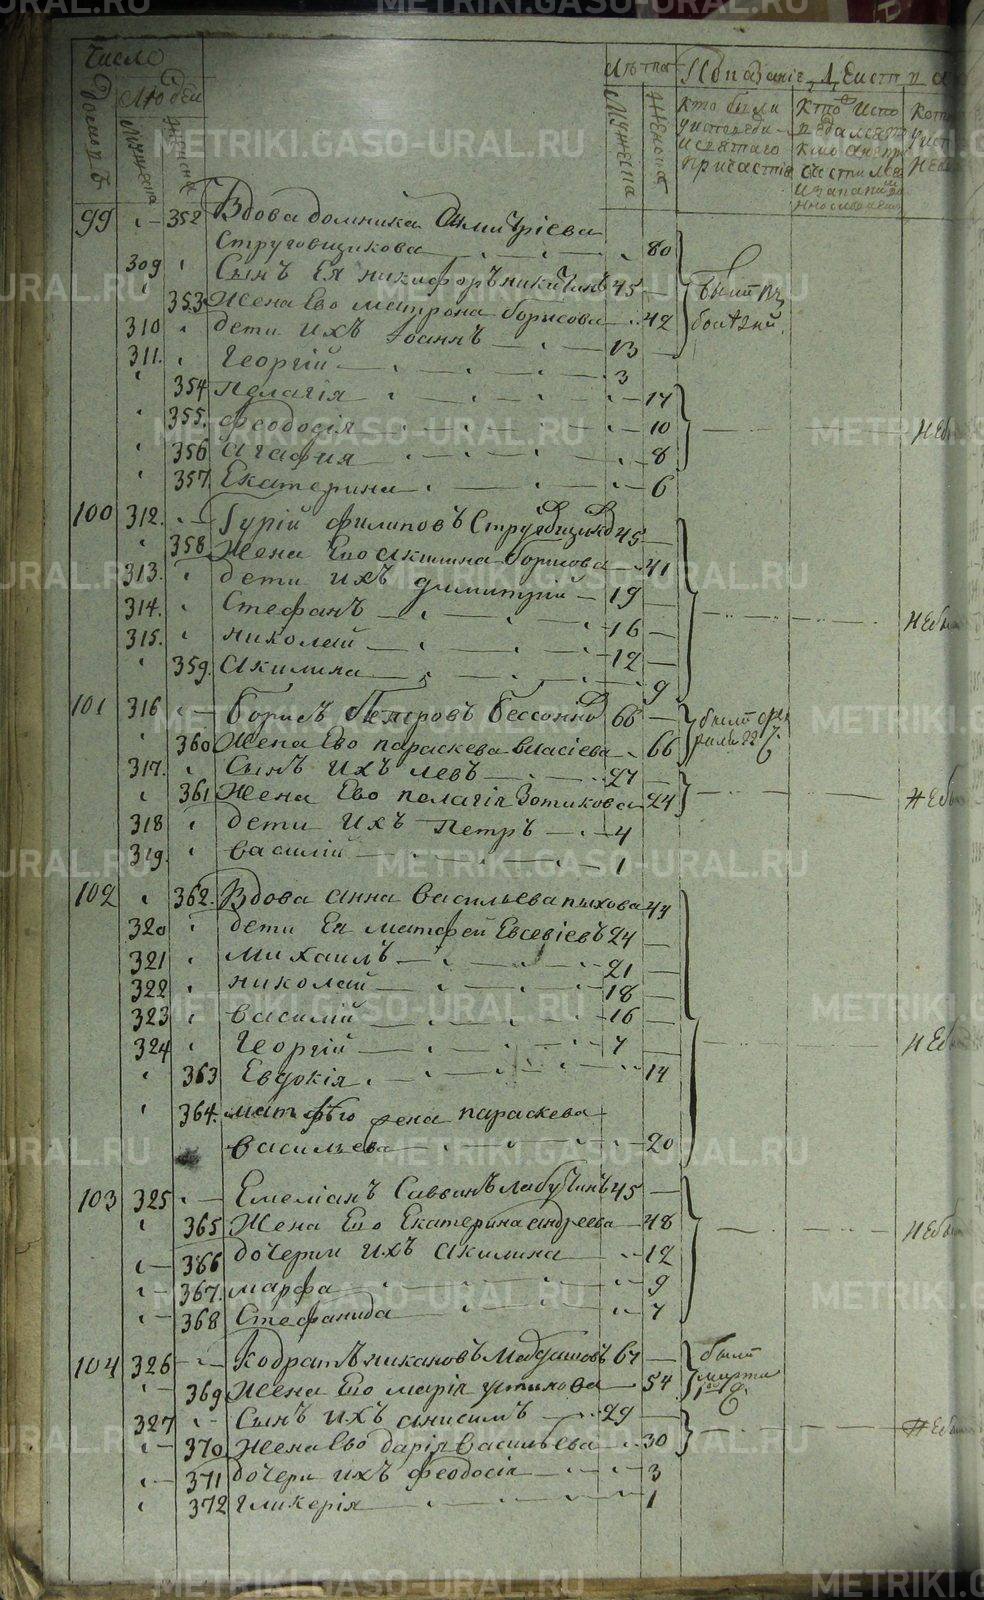 Число
Людей
Лѣта
Показаніе Дѣйства
Домовъ
Мужеска
Женска
Мужеска
Женска
кто были
у исповѣди
и святаго
причастія
99 352 Вдова домника Димитріева
Струговщикова 80
309 Сынъ Ея никифоръ никитинъ 45
353 Жена Ево матрона борисова 42
были въ
болѣзни
310 дети ихъ Іоаннъ 13
311. Георгій 3
354 Пелагія 17
355. Феодосія 10
356 Агафия 8
357 Екатерина 6
Не бы
100 312. Гурій Филиповъ Струговщиковъ 45
358 Жена Ево Акилина борисова 41
313. дети ихъ димитрій 19
314. Стефанъ 16
315. николай 12
359. Акилина 9
Не бы
101 316 борисъ Петровъ Бессонновъ 66
360 Жена Ево параскева власіева 66
были
317. Сынъ ихъ левъ 27
361 Жена Ево пелагія Зотикова 24
Не бы
318 дети ихъ Петръ 4
319. василій 1
102 362. Вдова Анна Васильева пыхова 47
320 дети Ея матфей Евсевіевъ 24
321 михаилъ 21
322 николай 18
323 василій 16
324 Георгій 7
363 Евдокія 14
Не бы
364. матфѣю жена параскева
васильева 20
103 325 Емеліанъ Саввинъ лабутинъ 45
365 Жена Ево Екатерина андреева 48
366 дочери ихъ Акилина 12
367. марфа 9
368 Стефанида 7
Не бы
104 326 Кодратъ никановъ 67
369 Жена Ево марія устинова 54
были
марта
327 Сынъ ихъ анисимъ 29
370 Жена Ево дарія васильева 30
Не бы
371 дочери ихъ феодосія 3
372 гликерія 1
METRIKI.GASO-URAL.RU